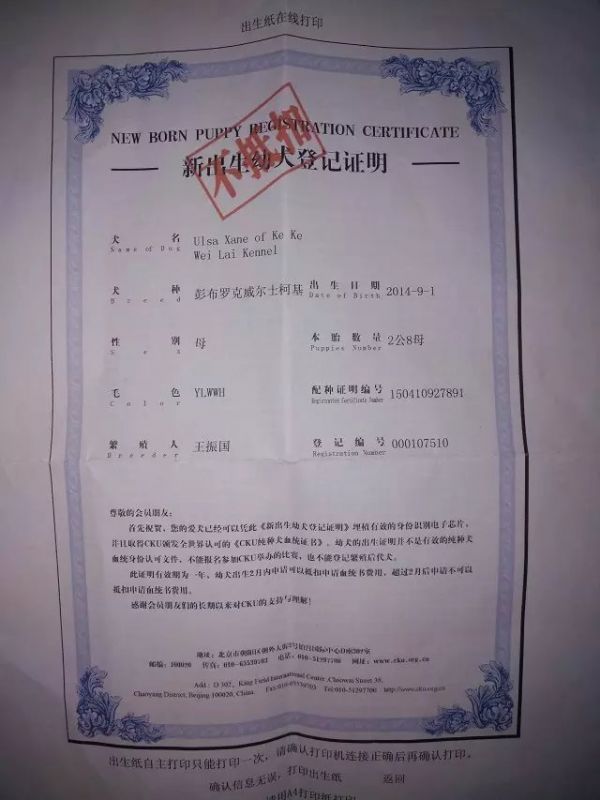 出生纸在线打印
NEW BORN PUPPY REGISTRATION CERTIFICATE
新出生幼犬登记证明
不抵扣
犬 名 Ulsa Xane of Ke Ke
Name of Dog Wei Lai Kennel
犬 种 彭布罗克威尔士柯基 出生日期 2014-9-1
Breed Date of Birth
性 别 母 本胎数量 2公8母
Sex Puppies Number
毛 色 YLWWH 配种证明编号 150410927891
Color Registration Certificate Number
繁 殖 人 王振国 登记编号 000107510
Breeder Registration Number
尊敬的会员朋友：
首先祝贺，您的爱犬已经可以凭此《新出生幼犬登记证明》埋植有效的身份识别电子芯片，
并且取得CKU颁发全世界认可的《CKU纯种犬血统证书》。幼犬的出生证明并不是有效的纯种犬
血统身份认可文件，不能报名参加CKU举办的比赛，也不能登记繁殖后代犬。
此证明有效期为一年，幼犬出生2月内申请可以抵扣申请血统书费用，超过2月后申请不可以
抵扣申请血统书费用。
感谢会员朋友们的长期以来对CKU的支持与理解！
地址：北京市朝阳区朝外大街
邮编：100020 传真：010-65539703 电话：010-51297700 网址：www.cku.org.cn
Add : D 302, King Field International Center ,Chaowai Street 38,
Chaoyang District, Beijing 100020, China. Fax:010-65539703 Tel:010-51297700 http://www.cku.org.cn
出生纸自主打印只能打印一次，请确认打印机连接正确后再确认打印。
确认信息无误，打印出生纸 返回
请用A4打印纸打印